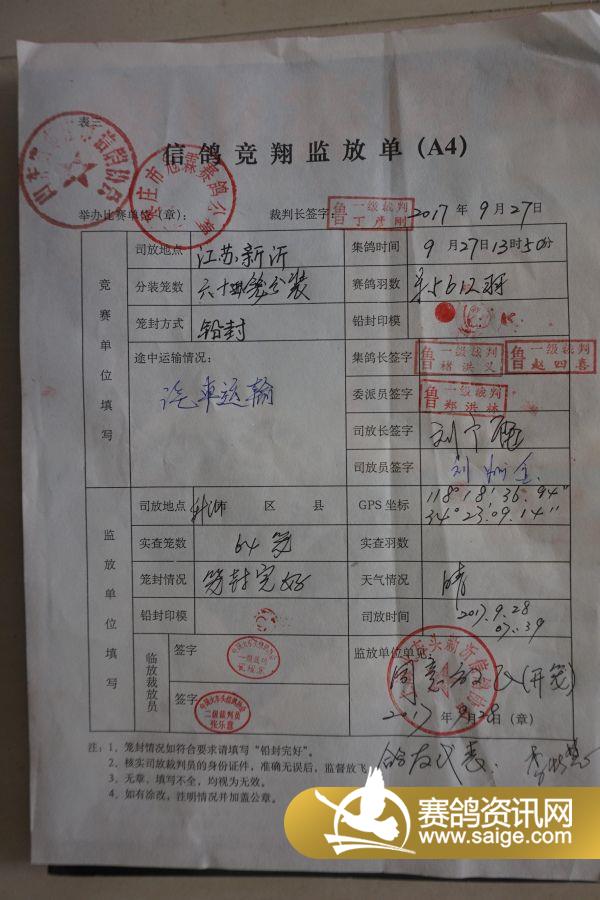 表三
信鸽竞翔监放单(A4)
举办比赛单位(章): 裁判长签字: 鲁 一级裁判 丁彦刚 2017年9月27日
竞赛单位填写
司放地点 江苏新沂 集鸽时间 9月27日13时50分
分装笼数 六十四笼分装 赛鸽羽数 5612羽
笼封方式 铅封 铅封印模
途中运输情况: 汽车运输
集鸽长签字 鲁 一级裁判 褚洪义 鲁 一级裁判 赵四喜
委派员签字 鲁 一级裁判 郑洪林
司放长签字
司放员签字
监放单位填写
司放地点 新沂市 区 县 GPS坐标 118°18′36.94″
34°23′09.14″
实查笼数 64笼 实查羽数
笼封情况 笼封完好 天气情况 晴
铅封印模 司放时间 2017.9.28
07:39
临放裁裁员
签字 一级裁判
签字 二级裁判员 张乐意
监放单位单见:
同意放飞(开笼)
2017年9月28日(章)
鸽友代表:
注:1、笼封情况如符合要求请填写“铅封完好”。
2、核实司放裁判员的身份证件,准确无误后,监督放飞
3、无章、填写不全,均视为无效。
4、如有涂改,注明情况并加盖公章。
赛鸽资讯网
www.saige.com